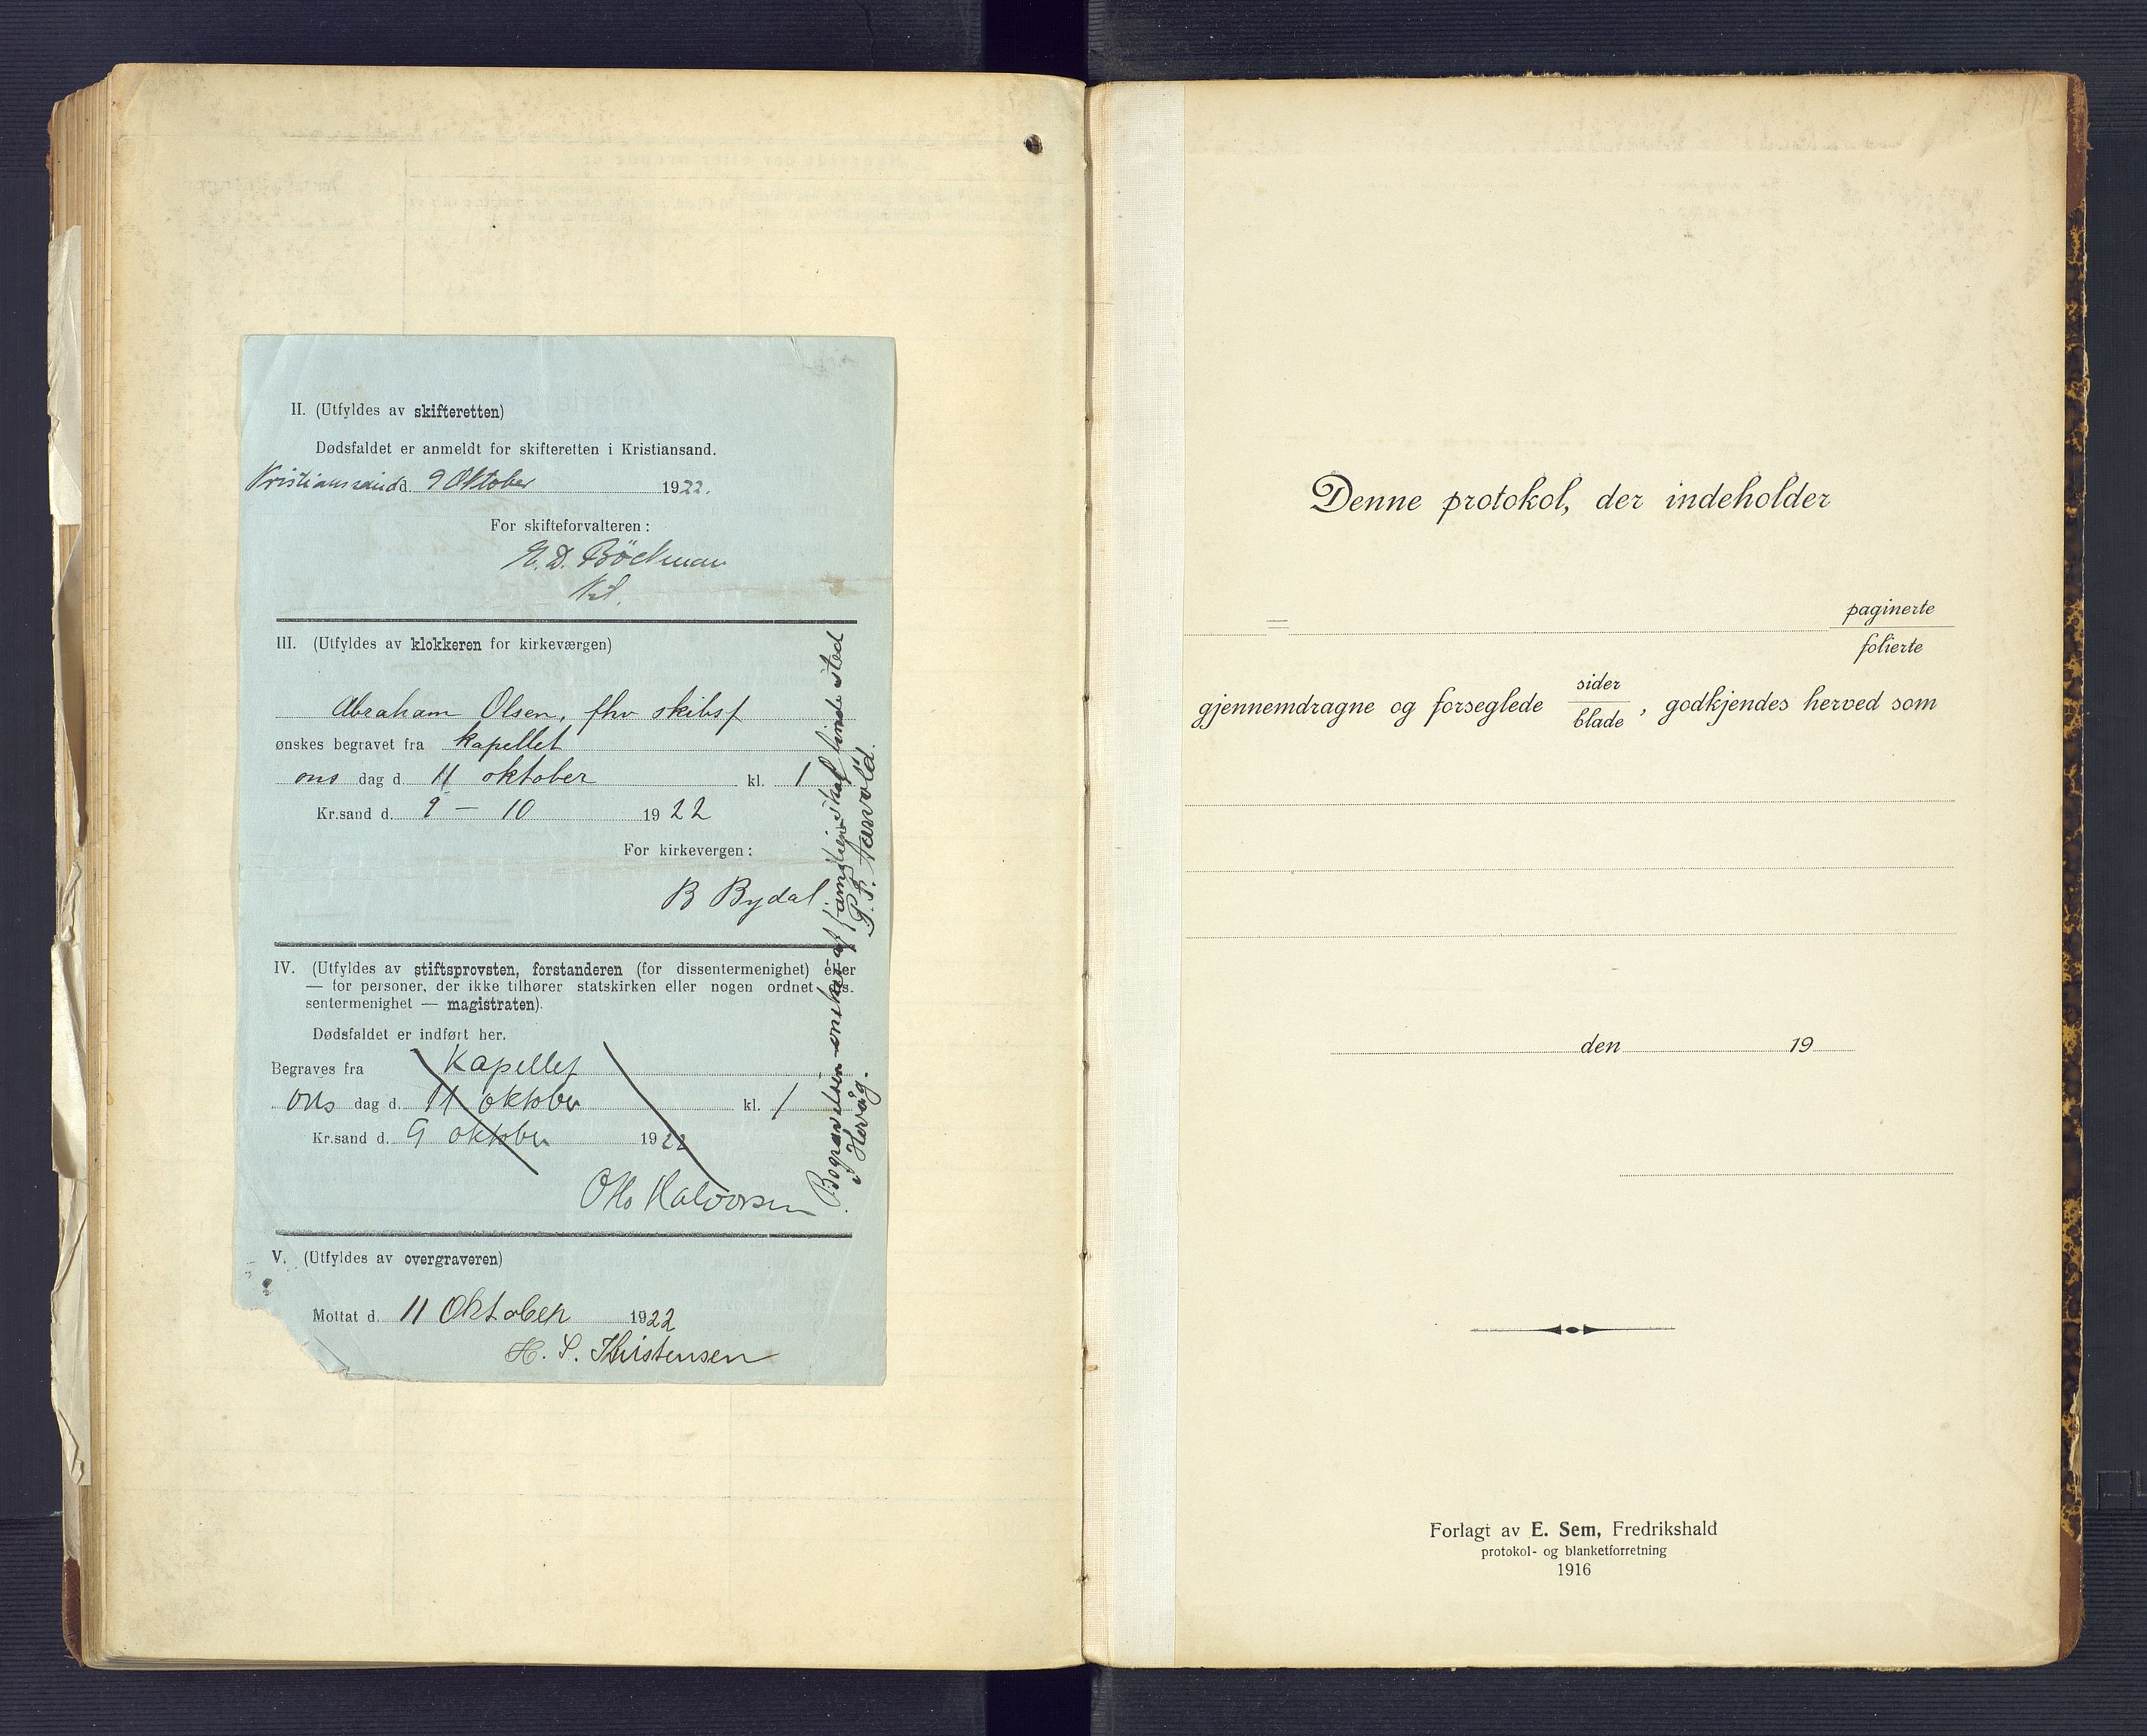 II. (Utfyldes av skifteretten)
Dødsfaldet er anmeldt for skifteretten i Kristiansand.
Kristiansand d. 9 Oktober 1922.
For skifteforvalteren:
D. Böckman
III. (Utfyldes av klokkeren for kirkeværgen)
Abraham Olsen, fhv skibsf
ønskes begravet fra kapellet
ons dag d. 11 oktober kl. 1
Kr.sand d. 9 – 10 1922
For kirkevergen:
B Bydal
IV. (Utfyldes av stiftsprovsten, forstanderen (for dissentermenighet) eller
— for personer, der ikke tilhører statskirken eller nogen ordnet dis-
sentermenighet — magistraten).
Dødsfaldet er indført her.
Begraves fra Kapellet
ons dag d. 11 oktober kl. 1
Kr.sand d. 9 oktober 1922
Otto Halvorsen
V. (Utfyldes av overgraveren)
Mottat d. 11 Oktober 1922
H. S. Kristensen
Begravelsen ønskes af familien skal finde sted
i Hervåg.
Denne protokol, der indeholder
=
paginerte
folierte
gjennemdragne og forseglede sider
blade, godkjendes herved som
den 19
Forlagt av E. Sem, Fredrikshald
protokol- og blanketforretning
1916